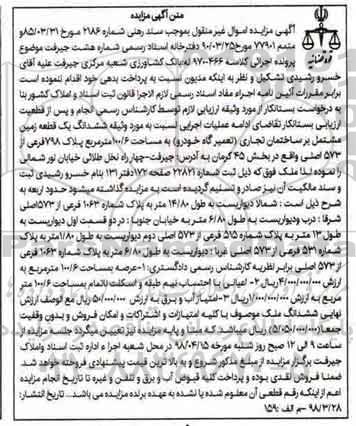 متن آگهی مزایده
آگهی مزایده اموال غیر منقول بموجب سند رهنی شماره ۲۱۸۶ مورخ ۸۵/۰۳/۳۱ و
متمم ۷۷۹۰۱ مورخ ۹۰/۰۳/۲۵ دفترخانه اسناد رسمی شماره هشت جیرفت موضوع
پرونده اجرائی کلاسه ۹۷۰۰۴۶۶ له بانک کشاورزی شعبه مرکزی جیرفت علیه آقای
خسرو رشیدی تشکیل و نظر به اینکه مدیون نسبت به پرداخت بدهی خود اقدام ننموده است
برابر مقررات آئین نامه اجراء مفاد اسناد رسمی لازم الاجرا قانون ثبت اسناد و املاک کشور بنا
به درخواست بستانکار از مورد وثیقه ارزیابی لازم توسط کارشناس رسمی انجام و پس از قطعیت
ارزیابی بستانکار تقاضای ادامه عملیات اجرایی نسبت به مورد وثیقه ششدانگ یک قطعه زمین
مشتمل بر ساختمان تجاری (تعمیر گاه خودرو) به مساحت ۱۰۰/۶ مترمربع پلاک ۷۹۸ فرعی از
۵۷۳ اصلی واقع در بخش ۴۵ کرمان به آدرس: جیرفت-چهار راه نخل طلائی خیابان نور شمالی
را نموده لذا ملک فوق که ذیل ثبت شماره ۲۲۸۲۱ صفحه ۱۷۲ دفتر ۱۳۱ بنام خسرو رشیدی ثبت
و سند مالکیت آن نیز صادر و تسلیم گردیده است به مزایده گذاشته میشود حدود اربعه به
شرح ذیل است: شمالا دیواریست به طول ۱۴/۸۰ متر به پلاک شماره ۱۰۶۳ فرعی از ۵۷۳ اصلی
شرقا: درب و دیواریست به طول ۶/۸۰ متر به خیابان جنوبا: در دو قسمت اول دیواریست به
طول ۱۳ متر به پلاک شماره ۵۱۵ فرعی از ۵۷۳ اصلی دوم دیواریست به طول ۱/۸۰ متر به پلاک
شماره ۵۳۱ فرعی از ۵۷۳ اصلی غربا: دیواریست به طول ۶/۸۰ متر به پلاک شماره ۱۰۶۳ فرعی
از ۵۷۳ اصلی برابر نظریه کارشناس رسمی دادگستری: ۱-عرصه بمساحت ۱۰۰/۶ مترمربع به
ارزش ۴/۰۰۰/۰۰۰/۰۰۰ ریال ۲- اعیانی با احتساب نیم طبقه و اسکلت ناتمام بمساحت ۱۰۰/۶ متر
مربع به ارزش ۱/۰۰۰/۰۰۰/۰۰۰ ریال ۳-امتیاز آب و برق به ارزش ۵۰/۰۰۰/۰۰۰ ریال مع الوصف ارزش
نهایی ششدانگ ملک موصوف با کلیه امتیازات و اشتراکات و امکان فروش و بدون وقفیت
جمعا (۵/۰۵۰/۰۰۰/۰۰۰) ریال میباشد. که مبنا و پایه مزایده نیز تعیین میگردد جلسه مزایده از
ساعت ۹ الی ۱۲ صبح روز شنبه مورخه ۹۸/۰۴/۱۵ در محل شعبه اجرا ء اداره ثبت اسناد و املاک
جیرفت برگزار مزایده از مبلغ مذکور شروع و به بالا ترین قیمت پیشنهادی فروخته خواهد شد.
ضمنا فروش نقدی بوده و پرداخت کلیه قبوض آب و برق و تلفن و غیره تا تاریخ انجام مزایده
اعم از اینکه رقم قطعی آن معلوم شده یا نشده به عهده برنده مزایده می باشد... تاریخ انتشار:
۹۸/۳/۲۸ -م الف :۱۵۹